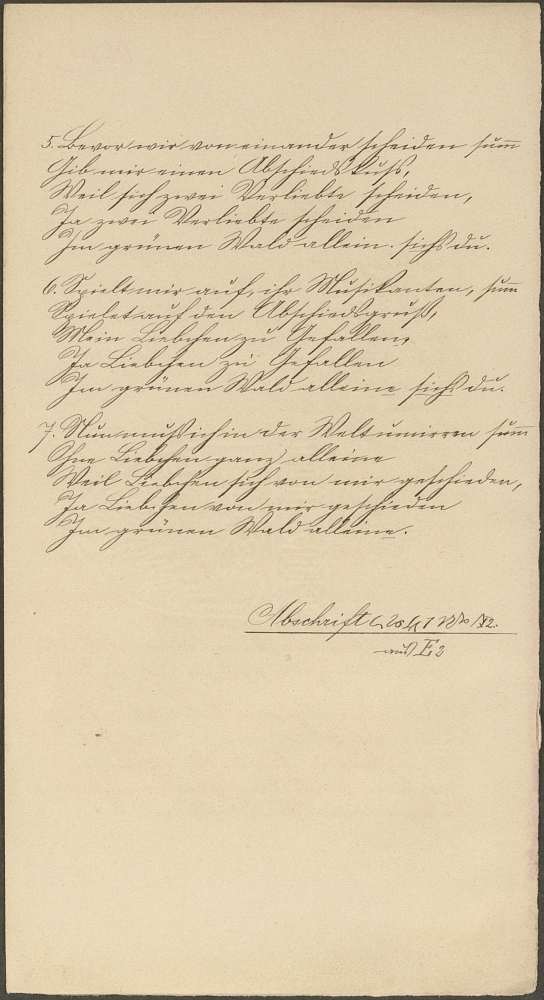 5. Bevor wir von einander scheiden sum̅
Gib mir einen Abschiedskuß,
Weil sich zwei Verliebte scheiden,
Ja zwei Verliebte scheiden
Im grünen Wald allein. siehst du.
6. Spielt mir auf, ihr Musikanten, sum̅
Spielet auf den Abschiedsgruß,
Mein Liebchen zu Gefallen,
Ja Liebchen zu Gefallen
Im grünen Wald alleine siehst du.
7. Nun muß ich in der Welt umirren sum̅
Ohne Liebchen ganz alleine
Weil Liebchen sich von mir geschieden,
Ja Liebchen von mir geschieden
Im grünen Wald alleine.
Abschrift
aus E 2